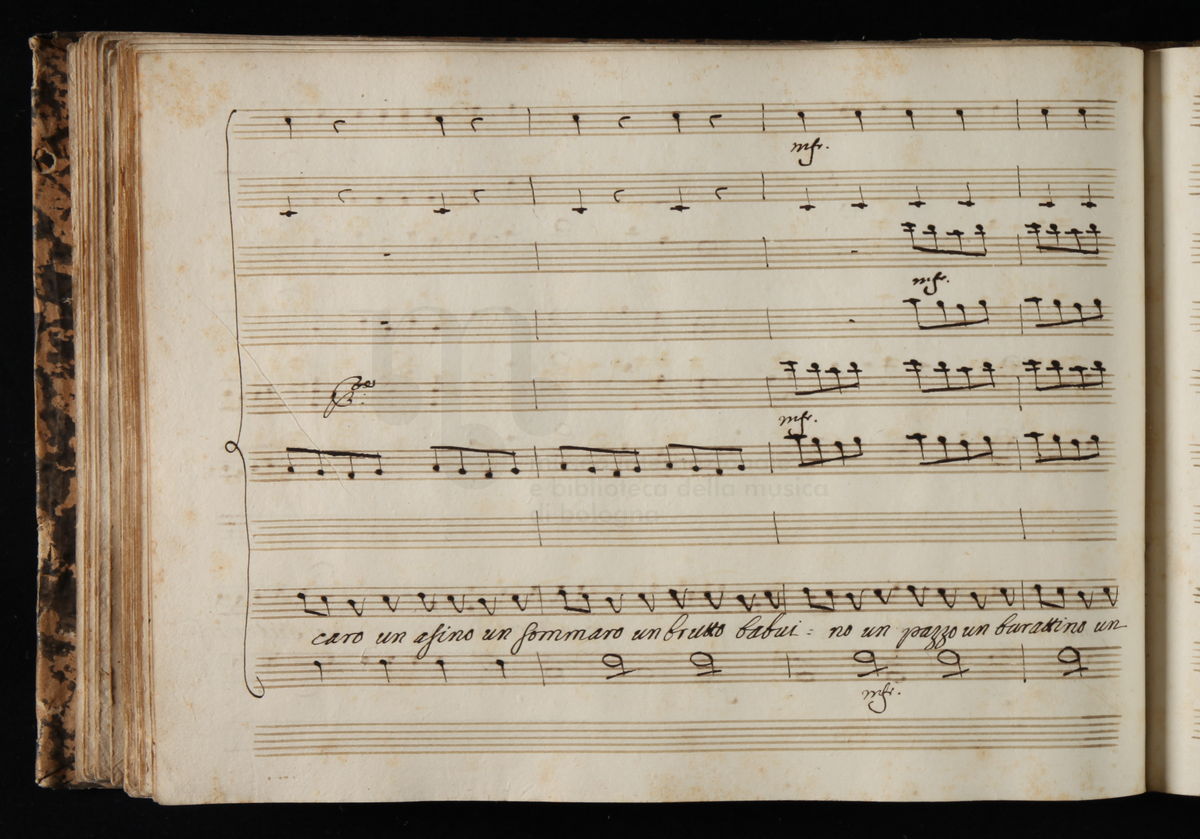 mfr.
mfr.
mfr.
caro un asino un sommaro un brutto babui = no un pazzo un burattino un
mfr.
e biblioteca della musica
di bologna